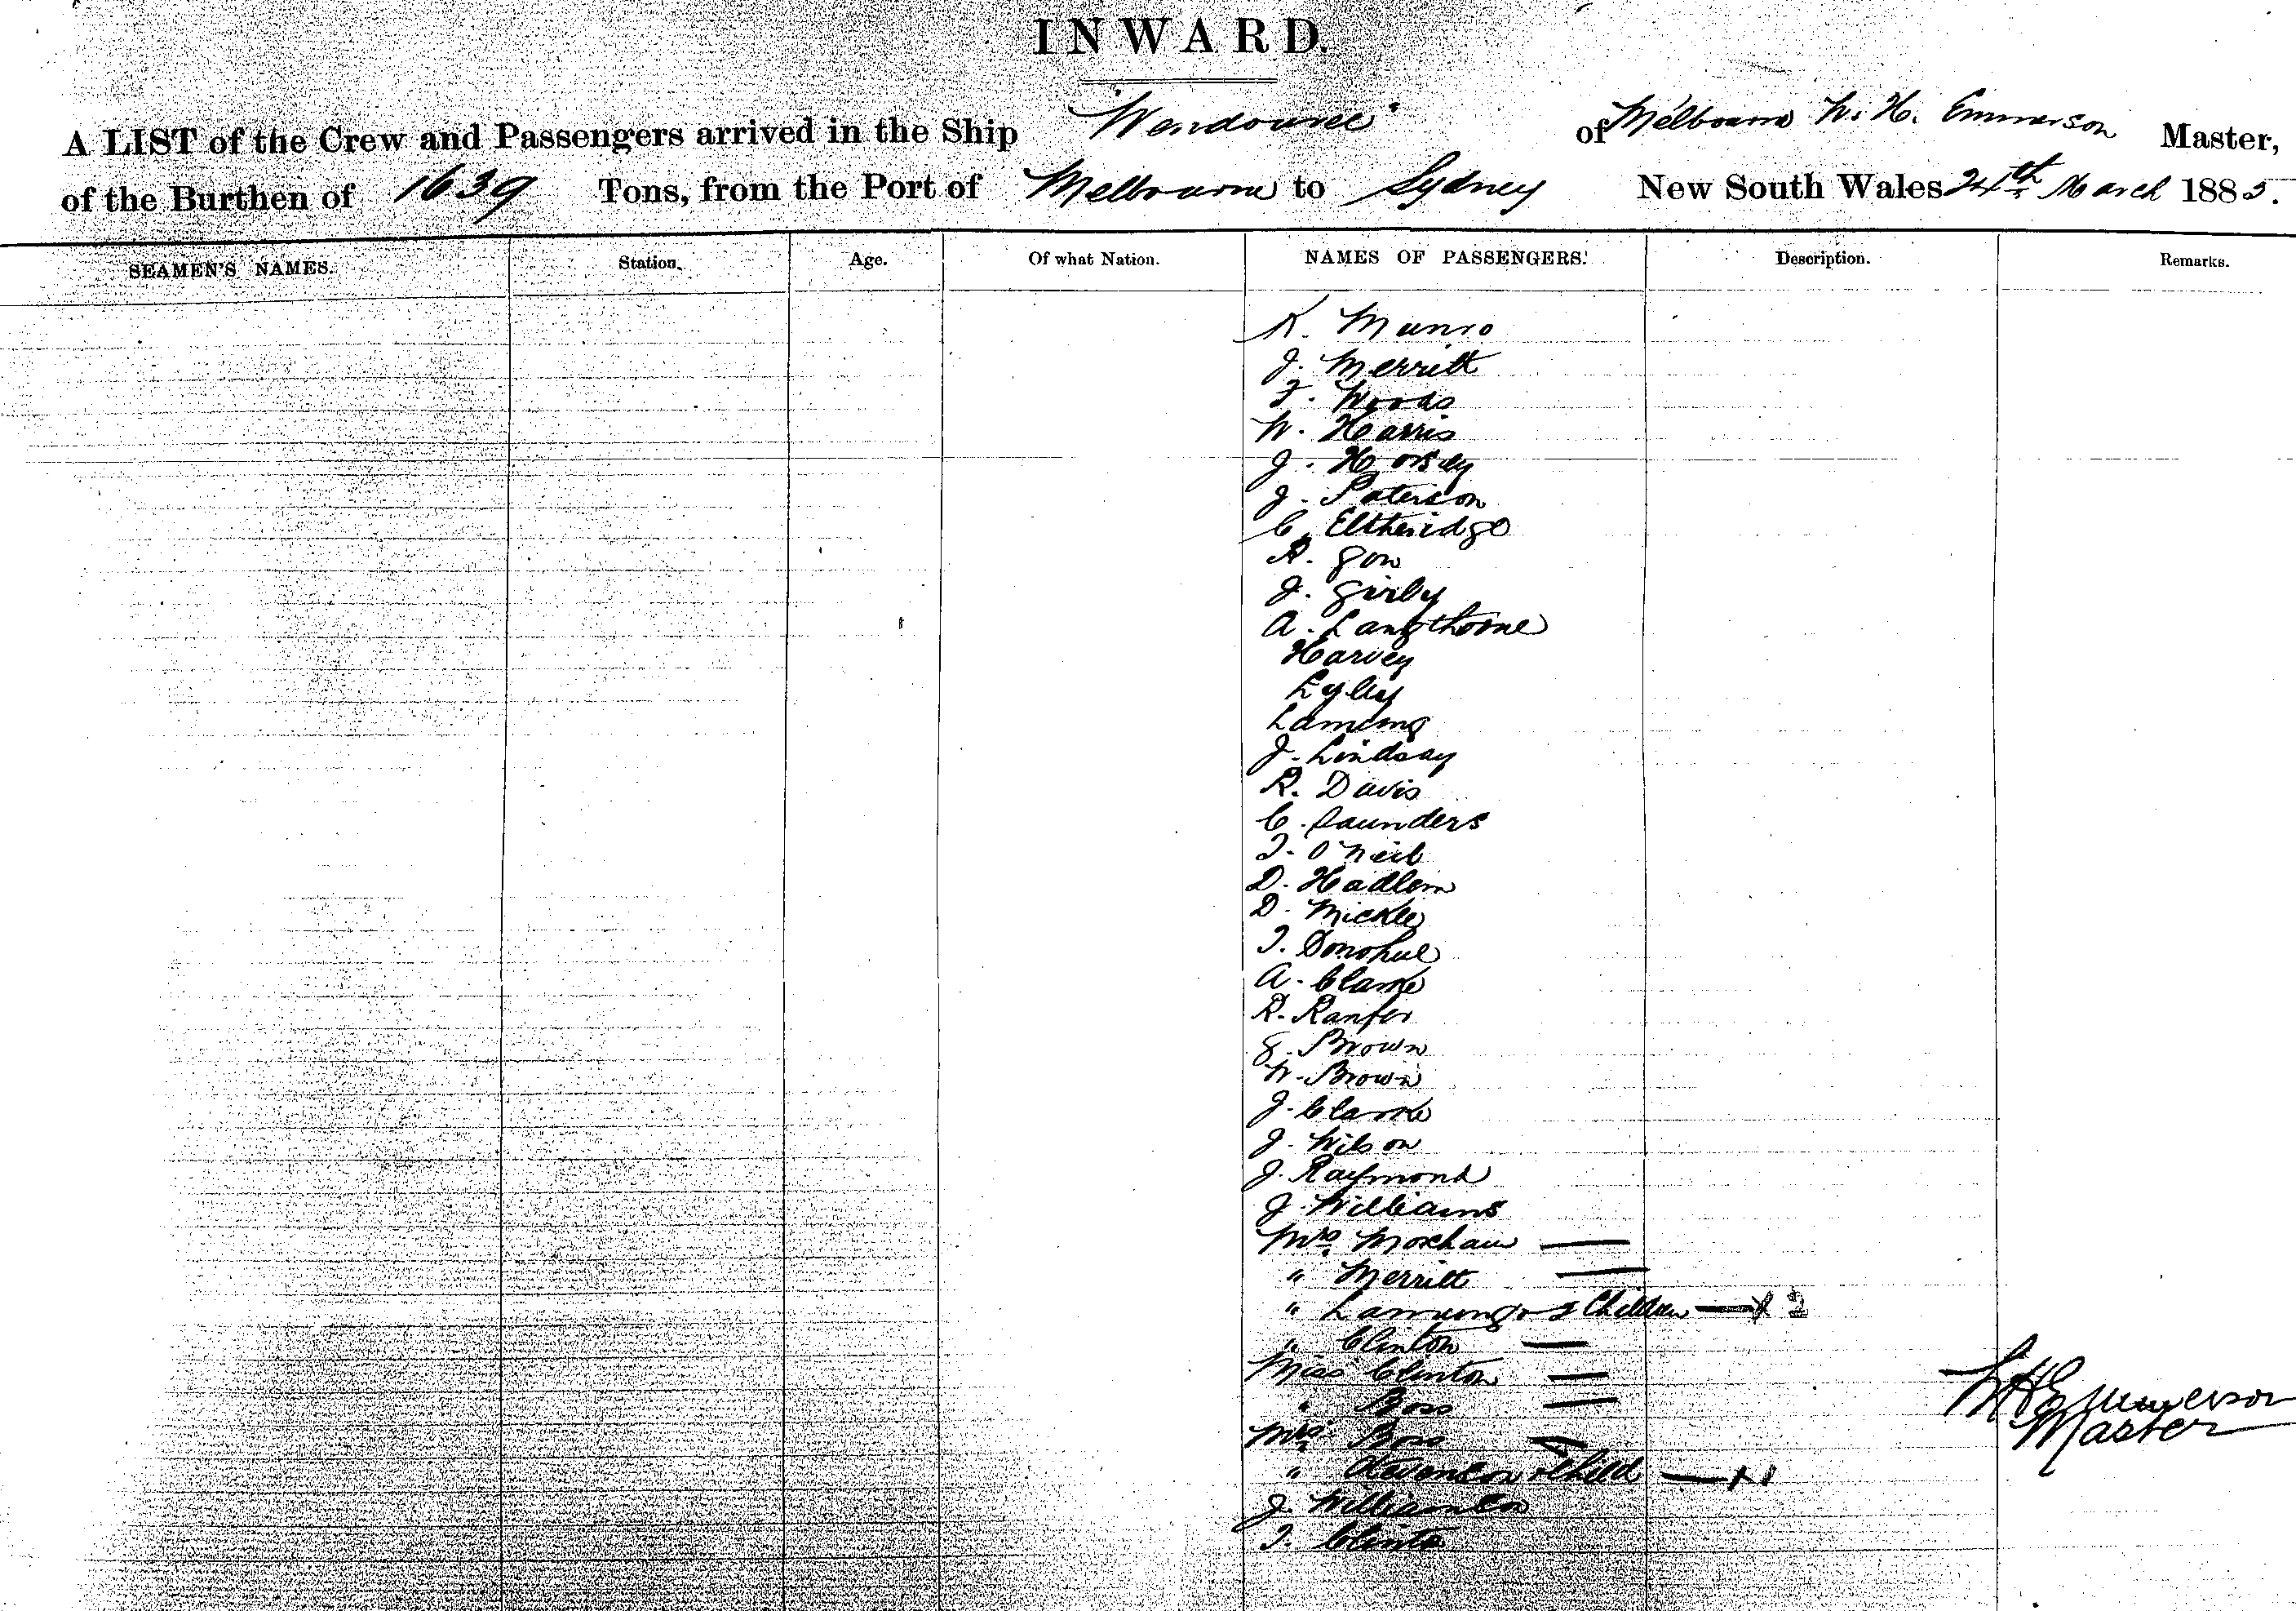 INWARD.
A LIST of the Crew and Passengers arrived in the Ship "Wendouree" of Melbourne W. H. Emmerson Master,
of the Burthen of 1639 Tons, from the Port of Melbourne to Sydney New South Wales March 188
SEAMEN'S NAMES. Station. Age. Of what Nation. NAMES OF PASSENGERS. Description. Remarks.
K. Munro
J. Merritt
F. Woods
W. Harris
J. Horsley
J. Paterson
C. Eltheridge
A. Gow
J. Girly
A. Langthorne
Harvey
Lyley
Laming
J. Lindsay
R. Davis
C. Saunders
T. O'Neil
D. Hadlem
D. Mickle
T. Donohue
A. Clarke
R. Ranfer
G. Brown
W. Brown
J. Clarke
J. Wilson
J. Raymond
J. Williams
Mrs
" Merritt
" & Children — x 2
" Clinton
Miss Clinton
" Boss
Mrs Boss
" Stevenson & Child — x 1
J. Williamson
T.
W H Emmerson
Master